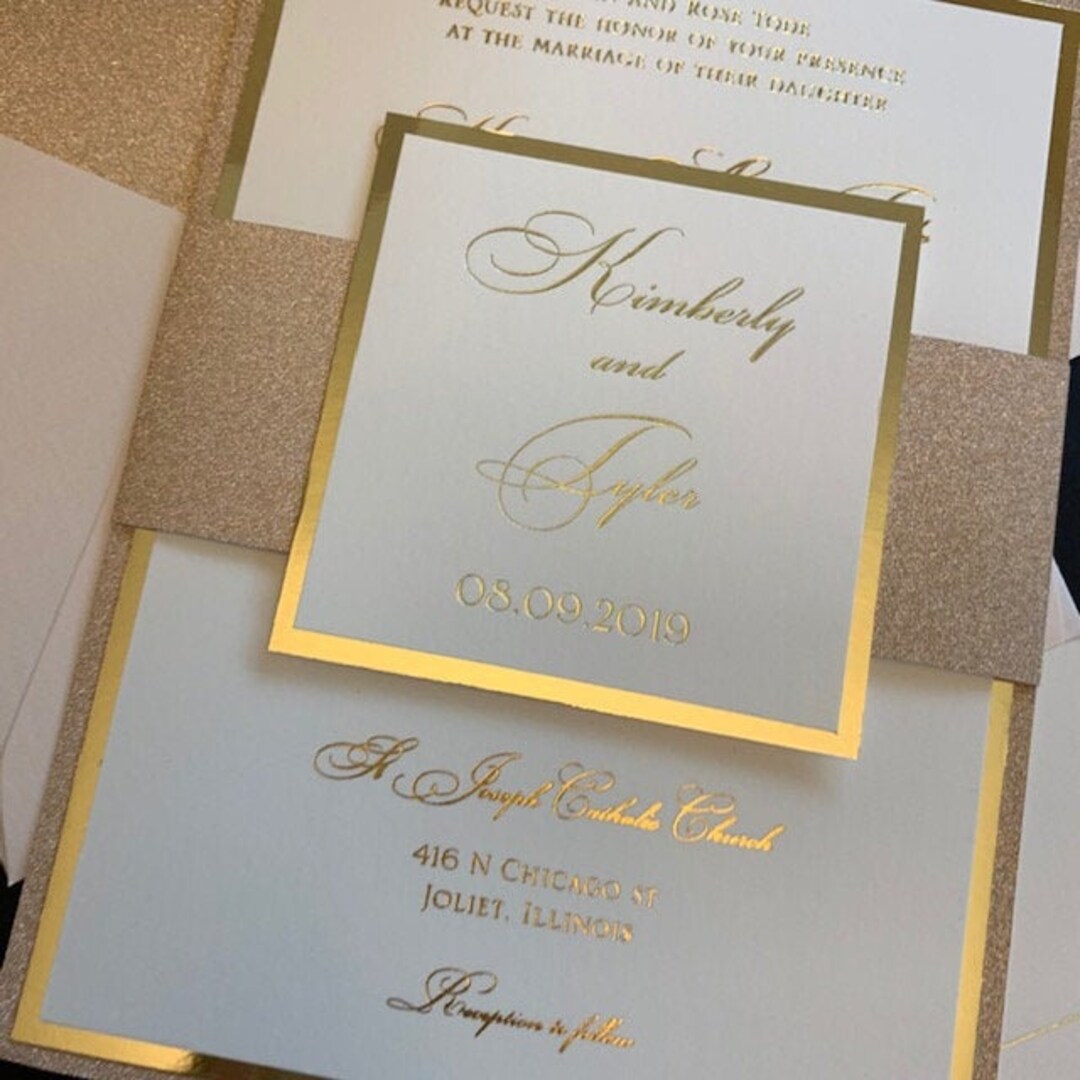 AND ROSE TODE
REQUEST THE HONOR OF YOUR PRESENCE
AT THE MARRIAGE OF THEIR DAUGHTER
Kimberly
and
Tyler
08.09.2019
St. Joseph Catholic Church
416 N CHICAGO ST
JOLIET, ILLINOIS
Reception to follow